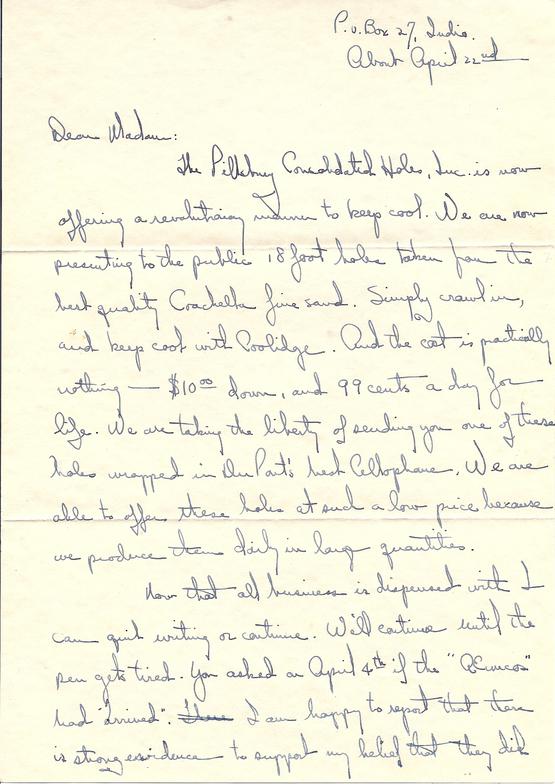 P.O. Box 27, Indio.
About April 22nd
Dear Madam:
The Pillsbury Consolidated Holes, Inc. is now
offering a revolutionary manner to keep cool. We are now
presenting to the public 18 foot holes taken from the
best quality Coachella fine sand. Simply crawl in,
and keep cool with Coolidge. And the cost is practically
nothing — $10.00 down, and 99 cents a day for
life. We are taking the liberty of sending you one of these
holes wrapped in DuPont's best Cellophane. We are
able to offer these holes at such a low price because
we produce them daily in large quantities.
Now that all business is dispensed with I
can quit writing or continue. We'll continue until the
pen gets tired. You asked on April 4th if the
had "arrived". I am happy to report that there
is strong evidence to support my belief that they did